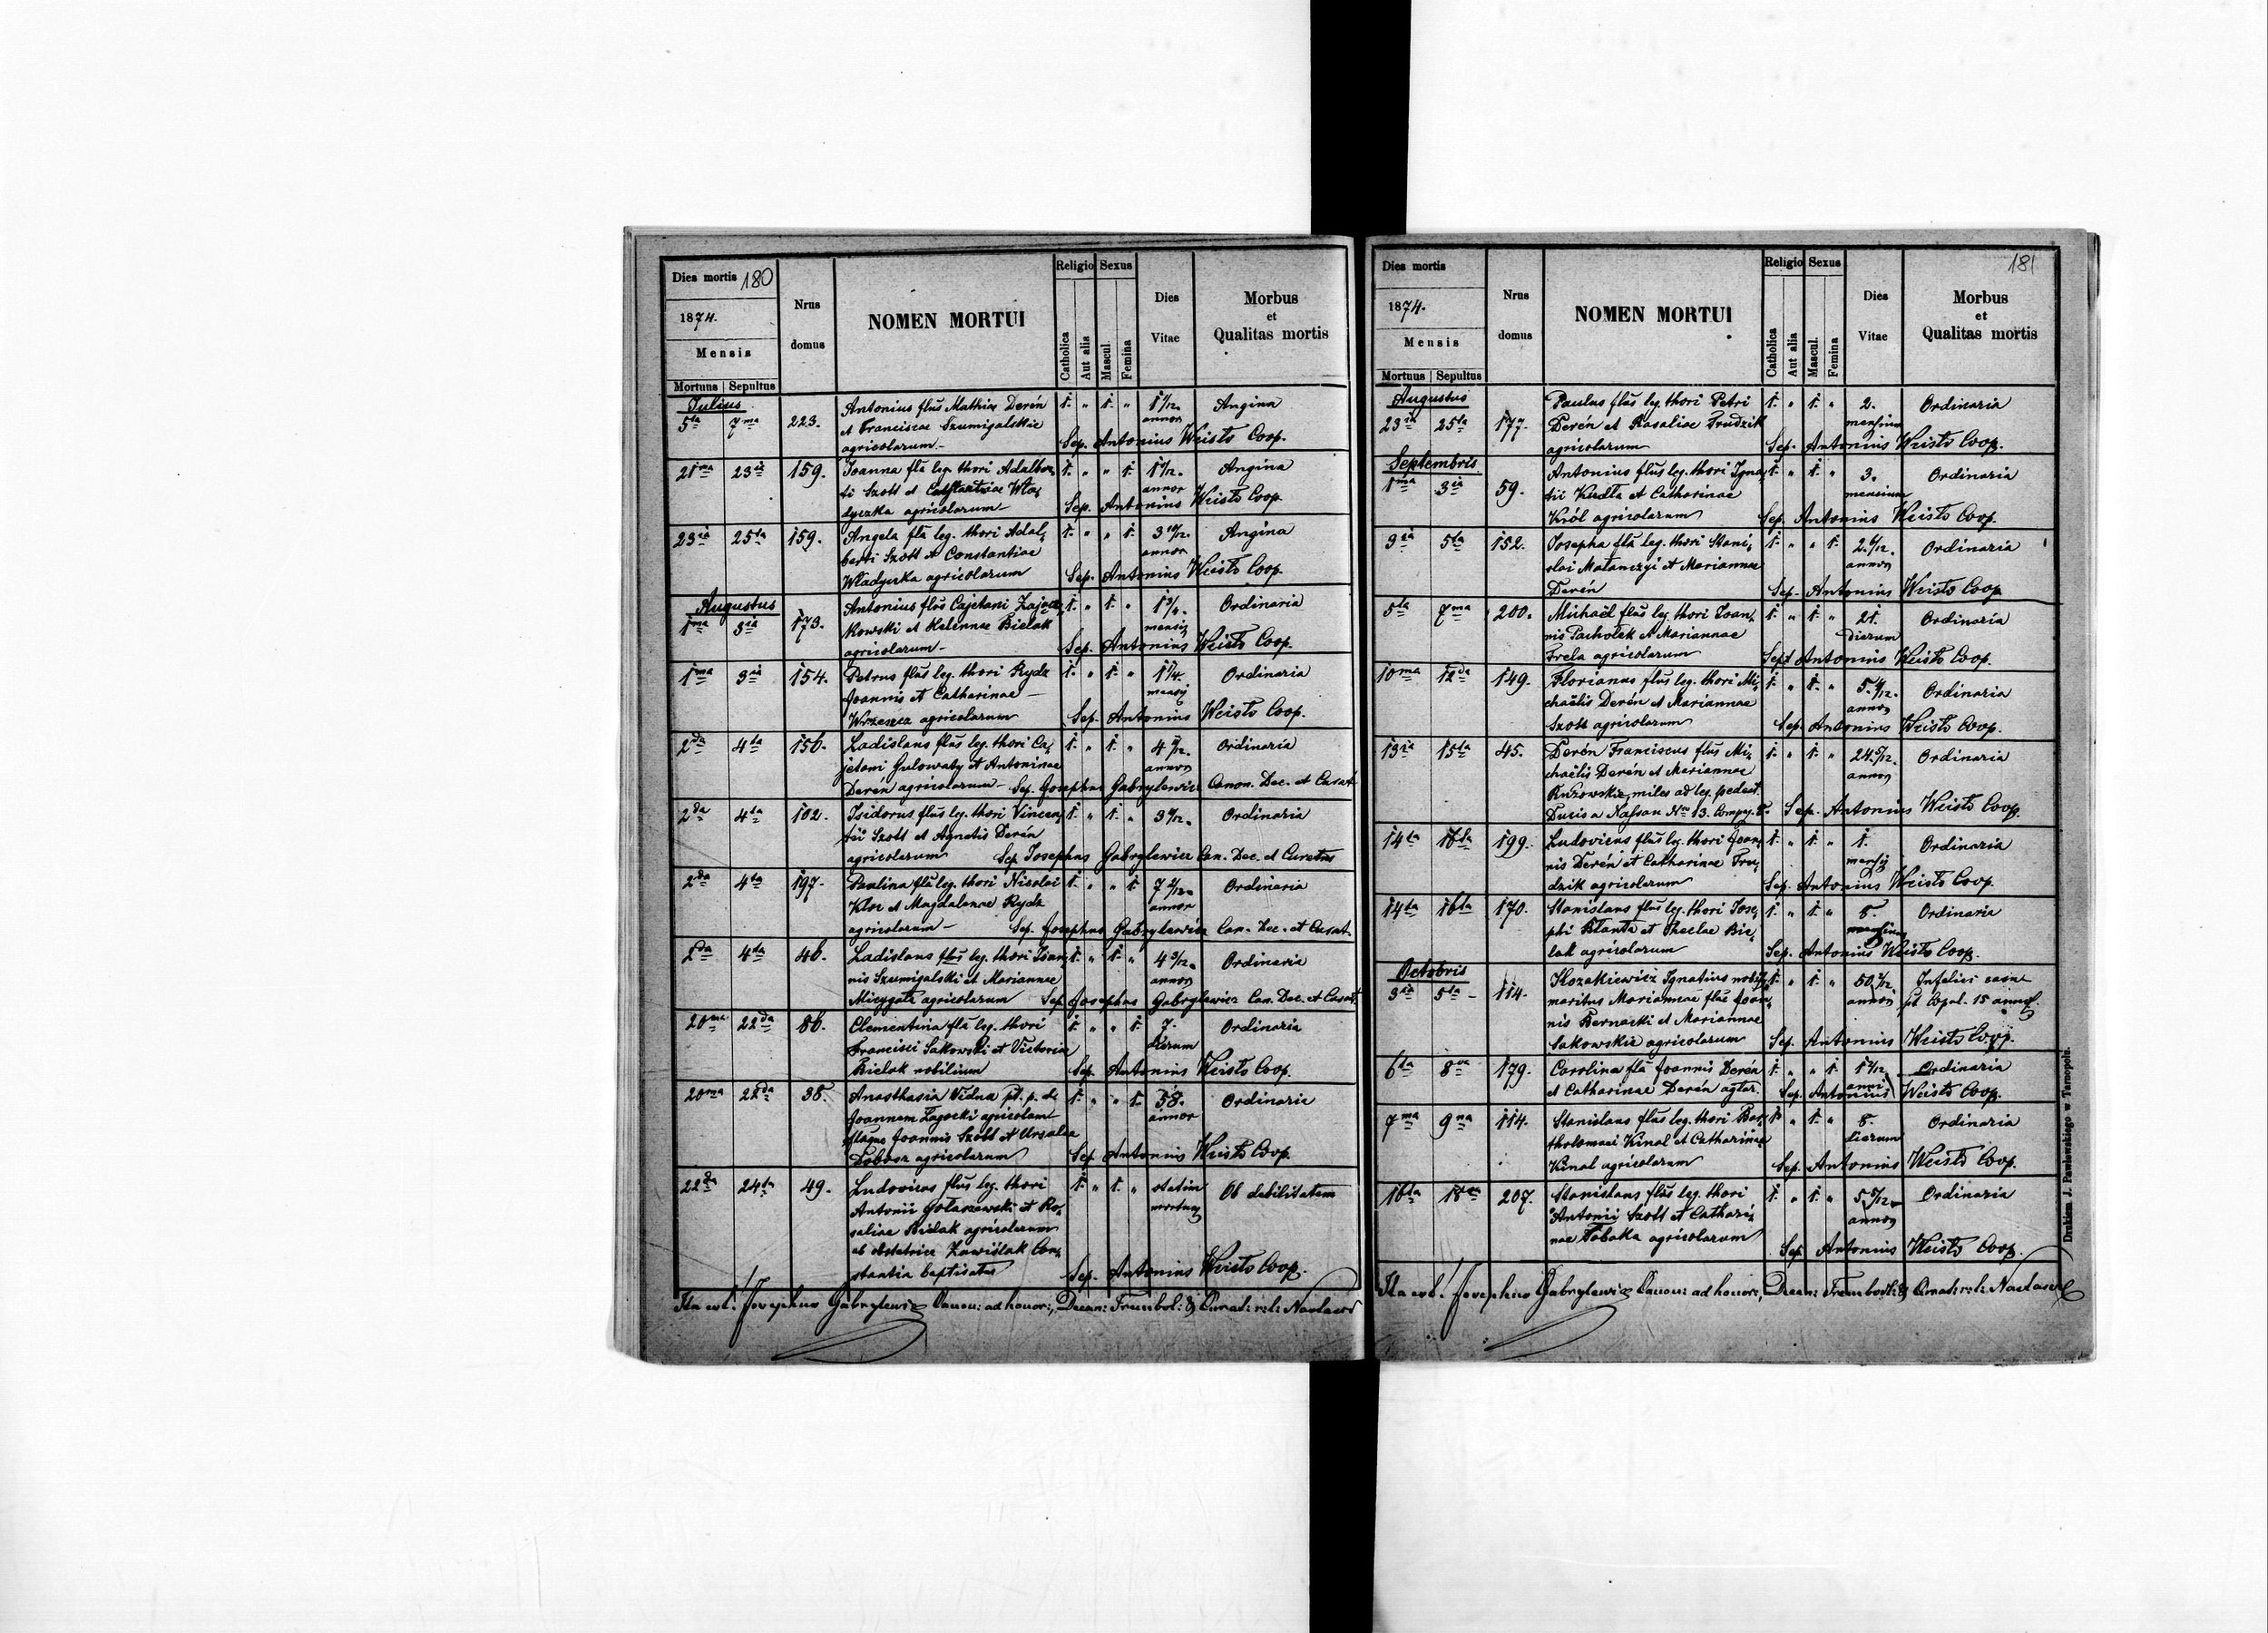 Dies mortis 180
1874.
Mensis
Mortuus Sepultus
Nrus domus
NOMEN MORTUI
Religio Sexus
Catholica
Aut alia
Mascul.
Femina
Dies Vitae
Morbus
et
Qualitas mortis
Julius
5ta 7ma 223. Antonius flus Mathiae Derén 1. " 1. " 1 1/12. Angina
et Franciscae Szumigalskie annor
agricolarum Sep. Antonius Weisto Coop.
21ma 23ia 159. Joanna fla leg. thori Adalber 1. " " 1. Angina
ti Szott et Constantiae Wła annor
dyczka agricolarum Sep. Antonius Weisto Coop
23ia 25ta 159. Angela fla leg. thori Adal 1. " " 1. 3 10/12. Angina
berti Szott et Constantiae annor
Władyczka agricolarum Sep. Antonius Weisto Coop.
Augustus
1ma 3ia 173. Antonius flus Cajetani Zającz 1. " 1. " Ordinaria
kowski et Helennae Bielak mensis
agricolarum Sep. Antonius Weisto Coop.
1ma 3ia 154. Petrus flus leg. thori Rydz 1. " 1. " 1 1/4. Ordinaria
Joannis et Catharinae mensis
Wrzeszcz agricolarum Sep. Antonius Weisto Coop.
2da 4ta 156. Ladislaus flus leg. thori Ca 1. " 1. " Ordinaria
jetani Gulowaty et Antoninae annor
Derén agricolarum Sep. Josephus Gabrylewicz Canon. Dec. et Curat
2da 4ta 102. Isidorus flus leg. thori Vincen 1. " 1. " Ordinaria
tii Szott et Agnetis Derén
agricolarum Sep Josephus Gabrylewicz Can. Dec. et Curatus
2da 4ta 197. Paulina fla leg. thori Nicolai 1. " " 1. 7 2/12. Ordinaria
Kloc et Magdalenae Rydz annor
agricolarum Sep. Josephus Gabrylewicz Can. Dec. et Curat.
2da 4ta 46. Ladislaus flus leg. thori Joan 1. " 1. " 4 3/12. Ordinaria
nis Szumigalski et Mariannae annor
agricolarum Sep Josephus Gabrylewicz Can. Dec. et Curat
20ma 22da 86. Clementina fla leg. thori 1. " " 1. 7. Ordinaria
Francisci Sakowski et Victoriae dierum
Bielak nobilium Sep. Antonius Weisto Coop.
20ma 22da 38. Anasthasia Vidua pt. p. de 1. " " 1. 58. Ordinaria
Joannem Zagocki agricolam annor
flaque Joannis Szott et Ursulae
Dobosz agricolarum Sep Antonius Weisto Coop
22da 24ta 49. Ludovicus flus leg. thori 1. " 1. " statim Ob debilitatem
Antonii Gołaszewski et Ro mortuus
saliae Bielak agricolarum
ab obstetrice Zawiślak Con
stantia baptisatus Sep. Antonius Weisto Coop.
Ita est! Josephus Gabrylewicz Canon: ad honor:, Decan: Trembol: & Curat: r: l:
Dies mortis
1874.
Mensis
Mortuus Sepultus
Nrus domus
NOMEN MORTUI
Religio Sexus
Catholica
Aut alia
Mascul.
Femina
Dies Vitae
181
Morbus
et
Qualitas mortis
Augustus
23ia 25ta 177. Paulus flus leg. thori Petri 1. " 1. " 2. Ordinaria
Derén et Rosaliae Prudzik mensium
agricolarum Sep. Antonius Weisto Coop.
Septembris
1ma 3ia 59. Antonius flus leg. thori Igna 1. " 1. " 3. Ordinaria
tii Kudła et Catharinae mensium
Król agricolarum Sep. Antonius Weisto Coop.
3ia 5ta 152. Josepha fla leg. thori Stani 1. " " 1. 2 6/12. Ordinaria
slai Matanczyi et Mariannae annor
Derén Sep. Antonius Weisto Coop
5ta 7ma 200. Michaël flus leg. thori Joan 1. " 1. " 21. Ordinaria
nis Pachołek et Mariannae dierum
Frela agricolarum Sept Antonius Weisto Coop.
10ma 12da 149. Florianus flus leg. thori Mi 1. " 1. " Ordinaria
chaëlis Derén et Mariannae annor
Szott agricolarum Sep. Antonius Weisto Coop.
13ia 15ta 45. Derén Franciscus flus Mi 1. " 1. " Ordinaria
chaëlis Derén et Mariannae annor
miles ad leg. pedest.
Ducis a Nassau Nro 13. Sep. Antonius Weisto Coop.
14ta 16ta 199. Ludovicus flus leg. thori Joan 1. " 1. " 1. Ordinaria
nis Derén et Catharinae Pru mensis
dzik agricolarum Sep. Antonius Weisto Coop.
14ta 16ta 170. Stanislaus flus leg. thori Jose 1. " 1. " 8. Ordinaria
phi et Theclae Bie mensium
lak agricolarum Sep. Antonius Weisto Coop.
Octobris
3ia 5ta 114. Ignatius nobilis 1. " 1. " Infelici casu
maritus Mariannae flae Joan annor pt Copul. 15 annor.
nis Bernacki et Mariannae
Sakowskie agricolarum Sep. Antonius Weisto Coop.
6ta 8va 179. Carolina fla Joannis Derén 1. " " 1. Ordinaria
et Catharinae Derén agtar. Sep. Antonius Weisto Coop.
7ma 9na 114. Stanislaus flus leg. thori Bar 1. " 1. " 8. Ordinaria
tholomaei Kinal et Catharinae dierum
Kinal agricolarum Sep. Antonius Weisto Coop.
16ta 18va 207. Stanislaus flus leg. thori 1. " 1. " Ordinaria
Antonii Szott et Cathari annor
nae Tabaka agricolarum Sep. Antonius Weisto Coop.
Ita est! Josephus Gabrylewicz Canon: ad honor:, Decan: Trembol: & Curat: r: l:
Drukiem J. Pawłowskiego w Tarnopolu.